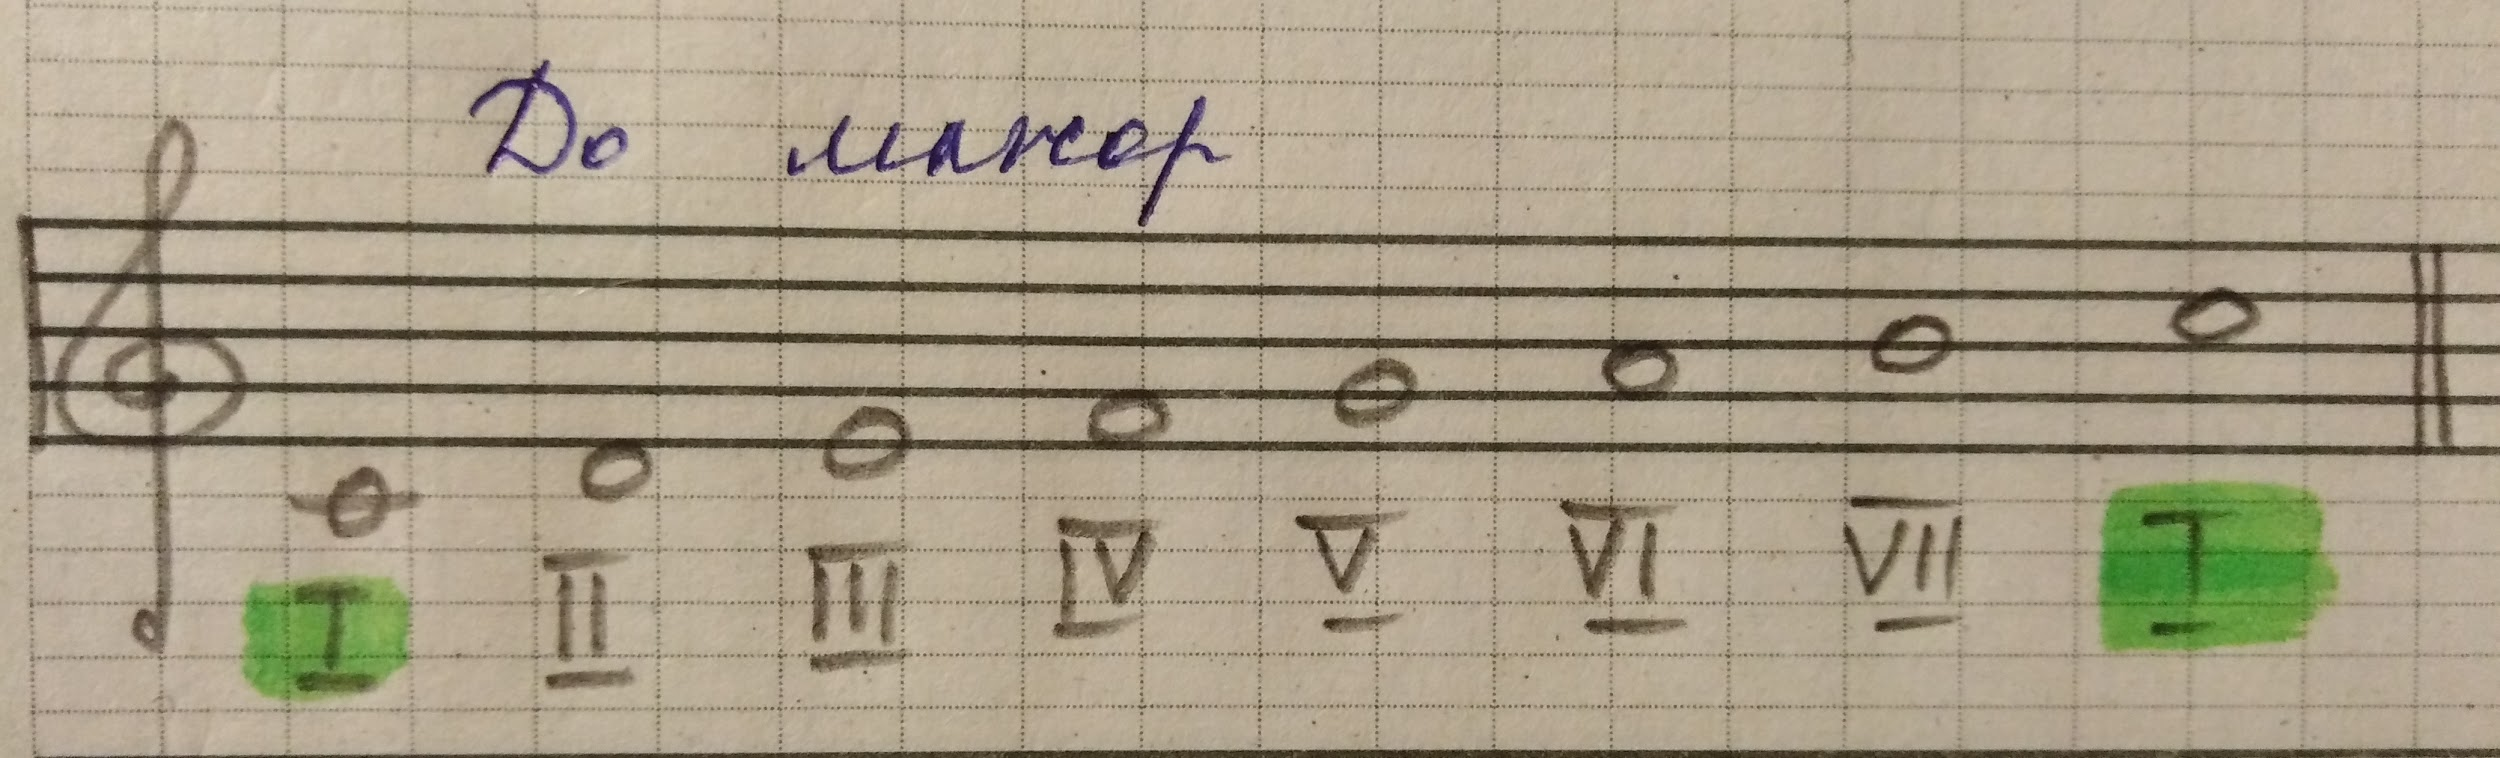 До мажор
I II III IV V VI VII I